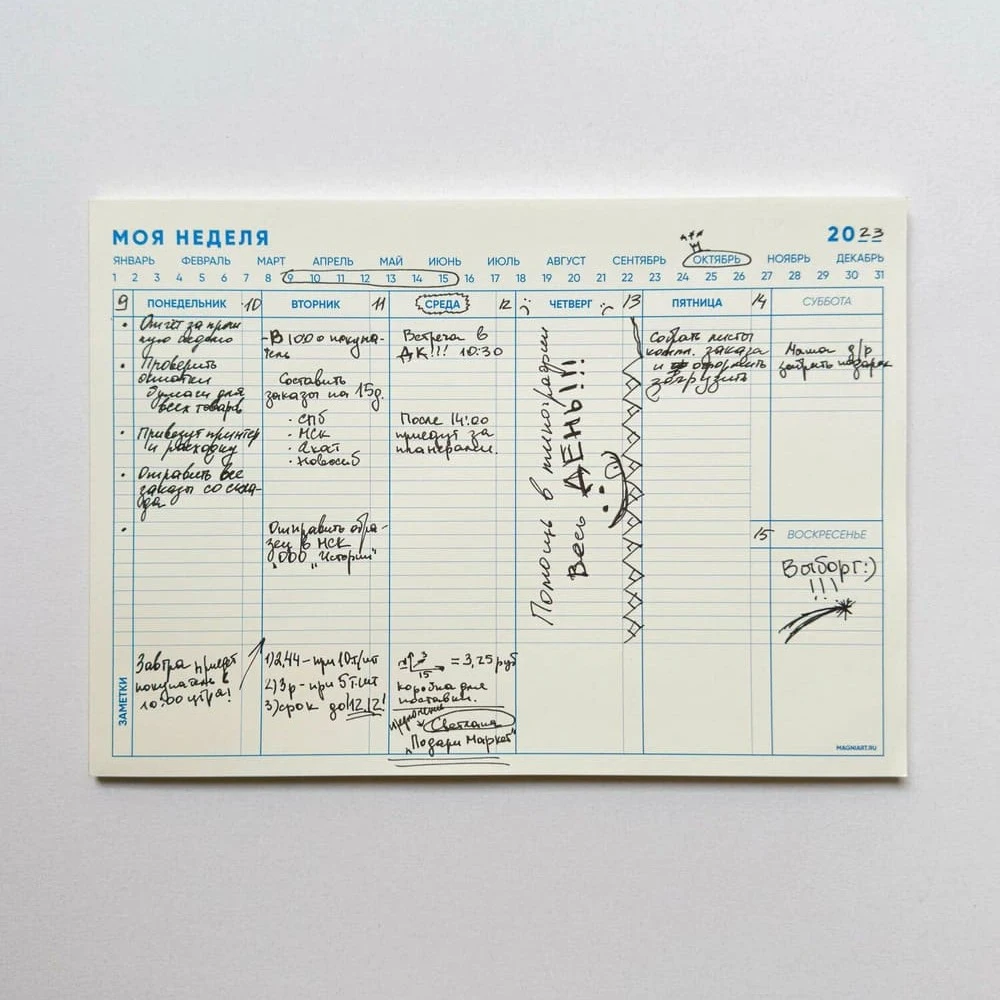 МОЯ НЕДЕЛЯ
2023
ЯНВАРЬ ФЕВРАЛЬ МАРТ АПРЕЛЬ МАЙ ИЮНЬ ИЮЛЬ АВГУСТ СЕНТЯБРЬ ОКТЯБРЬ НОЯБРЬ ДЕКАБРЬ
1 2 3 4 5 6 7 8 9 10 11 12 13 14 15 16 17 18 19 20 21 22 23 24 25 26 27 28 29 30 31
9 ПОНЕДЕЛЬНИК
• Отчёт за прош
лую неделю
• Проверить
остатки
бумаги для
всех товаров
• Привезут принтер
и расходку
• Отправить все
заказы со скла-
да
•
10 ВТОРНИК
- В 10:00 покупа-
тель
Составить
заказы на 15д.
· СПб
· МСК
· Екат
· Новосиб
Отправить обра-
зец в МСК
ООО "Истории"
11 СРЕДА
Встреча в
ДК!!! 10:30
После 14:00
приедут за
планерами.
12 ЧЕТВЕРГ
Помощь в типографии
Весь ДЕНЬ!!!
13 ПЯТНИЦА
Собрать листы
компл. заказа
и оформить
загрузить
14 СУББОТА
Маша д/р
забрать подарок
15 ВОСКРЕСЕНЬЕ
Выборг:)
!!!
ЗАМЕТКИ
Завтра приедет
покупатель к
10:00 утра!
1) 2,44 – при 10т/шт
2) 3р – при 5т/шт
3) срок до 12.12!
3
15
= 3,25 руб
коробка для
поставки.
Светлана
"Подари Маркет"
MAGNIART.RU